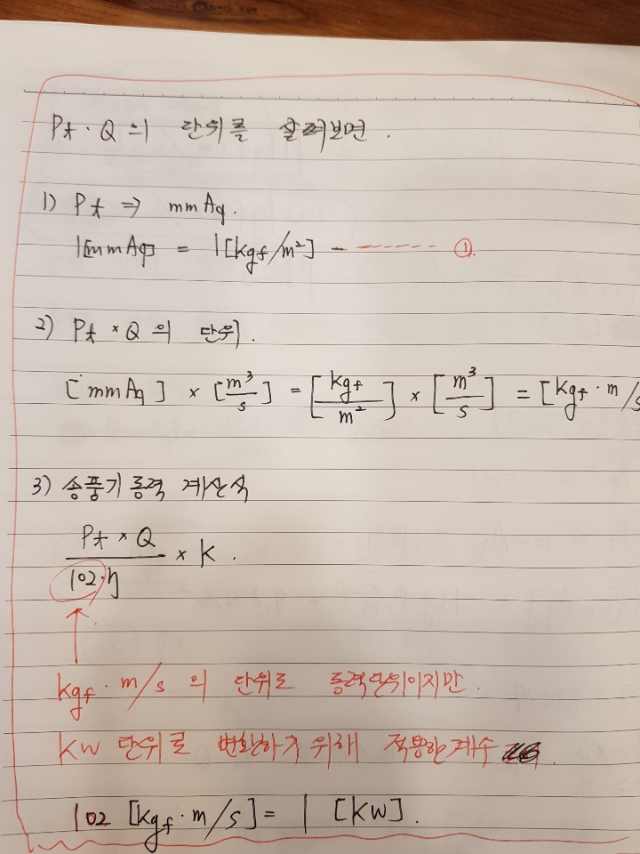 Pt · Q 의 단위를 살펴보면 .
1) Pt ⇒ mmAq.
1[mmAq] = 1[kgf/m²] - ------- ①.
2) Pt × Q 의 단위.
[mmAq] × [m³/s] = [kgf/m²] × [m³/s] = [kgf · m/s
3) 송풍기 동력 계산식
Pt × Q / 102·η × K .
kgf · m/s 의 단위로 동력단위이지만 .
KW 단위로 변환하기 위해 적용한계수
102 [kgf · m/s] = 1 [KW] .